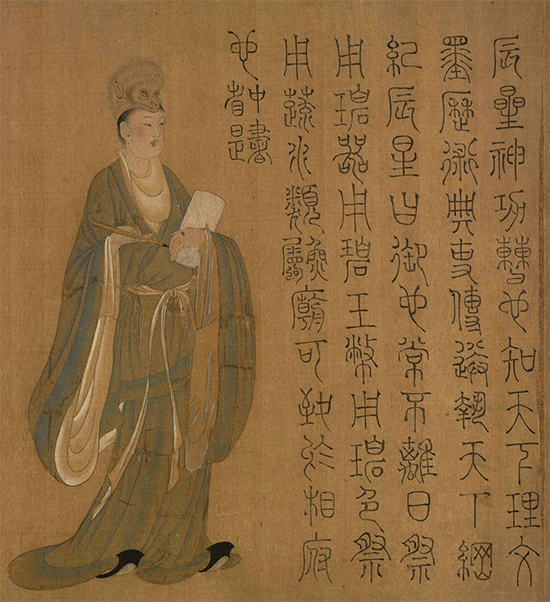 辰星神功曹也知天下理文
墨歷術典吏傳送執天下綱
紀辰星曰御也常不離日祭
用碧器用碧玉幣用碧色祭
用蔬水類廟可致於相府
也中書
省是